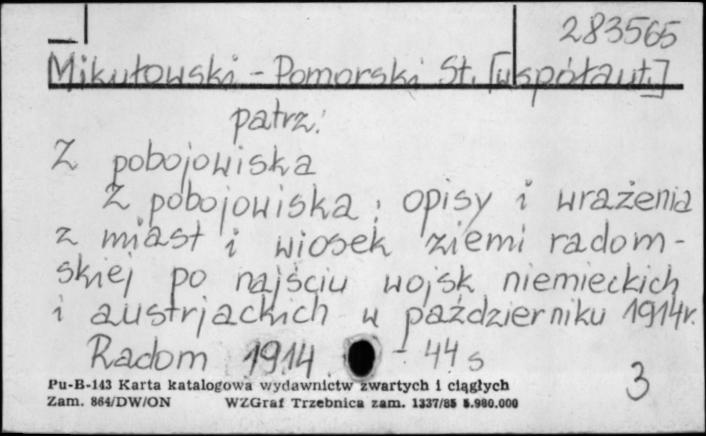 283565
Mikułowski - Pomorski St. [współaut.]
patrz:
Z pobojowiska
Z pobojowiska : opisy i wrażenia
z miast i wiosek ziemi radom-
skiej po najściu wojsk niemieckich
i austrjackich w październiku 1914r.
Radom 1914. - 44 s
3
Pu-B-143 Karta katalogowa wydawnictw zwartych i ciągłych
Zam. 864/DW/ON WZGraf Trzebnica zam. 1337/85 5.980.000